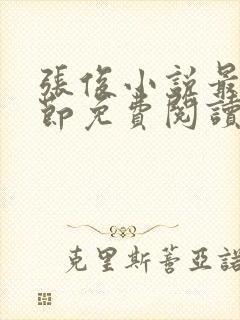 張俊小說最
節免費閱讀
克里斯蒂亞諾